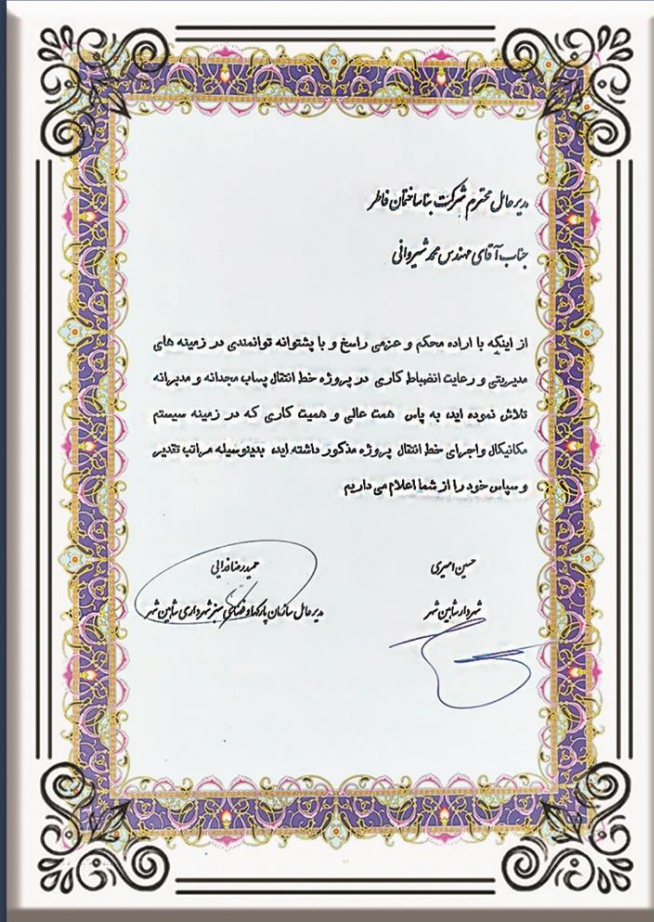 مدیرعامل محترم شرکت بناساختمان فاطر
جناب آقای مهندس محمد شیروانی
از اینکه با اراده محکم و عزمی راسخ و با پشتوانه توانمندی در زمینه های
مدیریتی و رعایت انضباط کاری در پروژه خط انتقال پساب مجدانه و مدبرانه
تلاش نموده اید، به پاس همت عالی و همیت کاری که در زمینه سیستم
مکانیکال واجرای خط انتقال پروژه مذکور داشته اید، بدینوسیله مراتب تقدیر
و سپاس خود را از شما اعلام می داریم
حسین امیری
شهردار شاهین شهر
حمیدرضا فدایی
مدیرعامل سازمان پارکها و فضای سبز شهرداری شاهین شهر